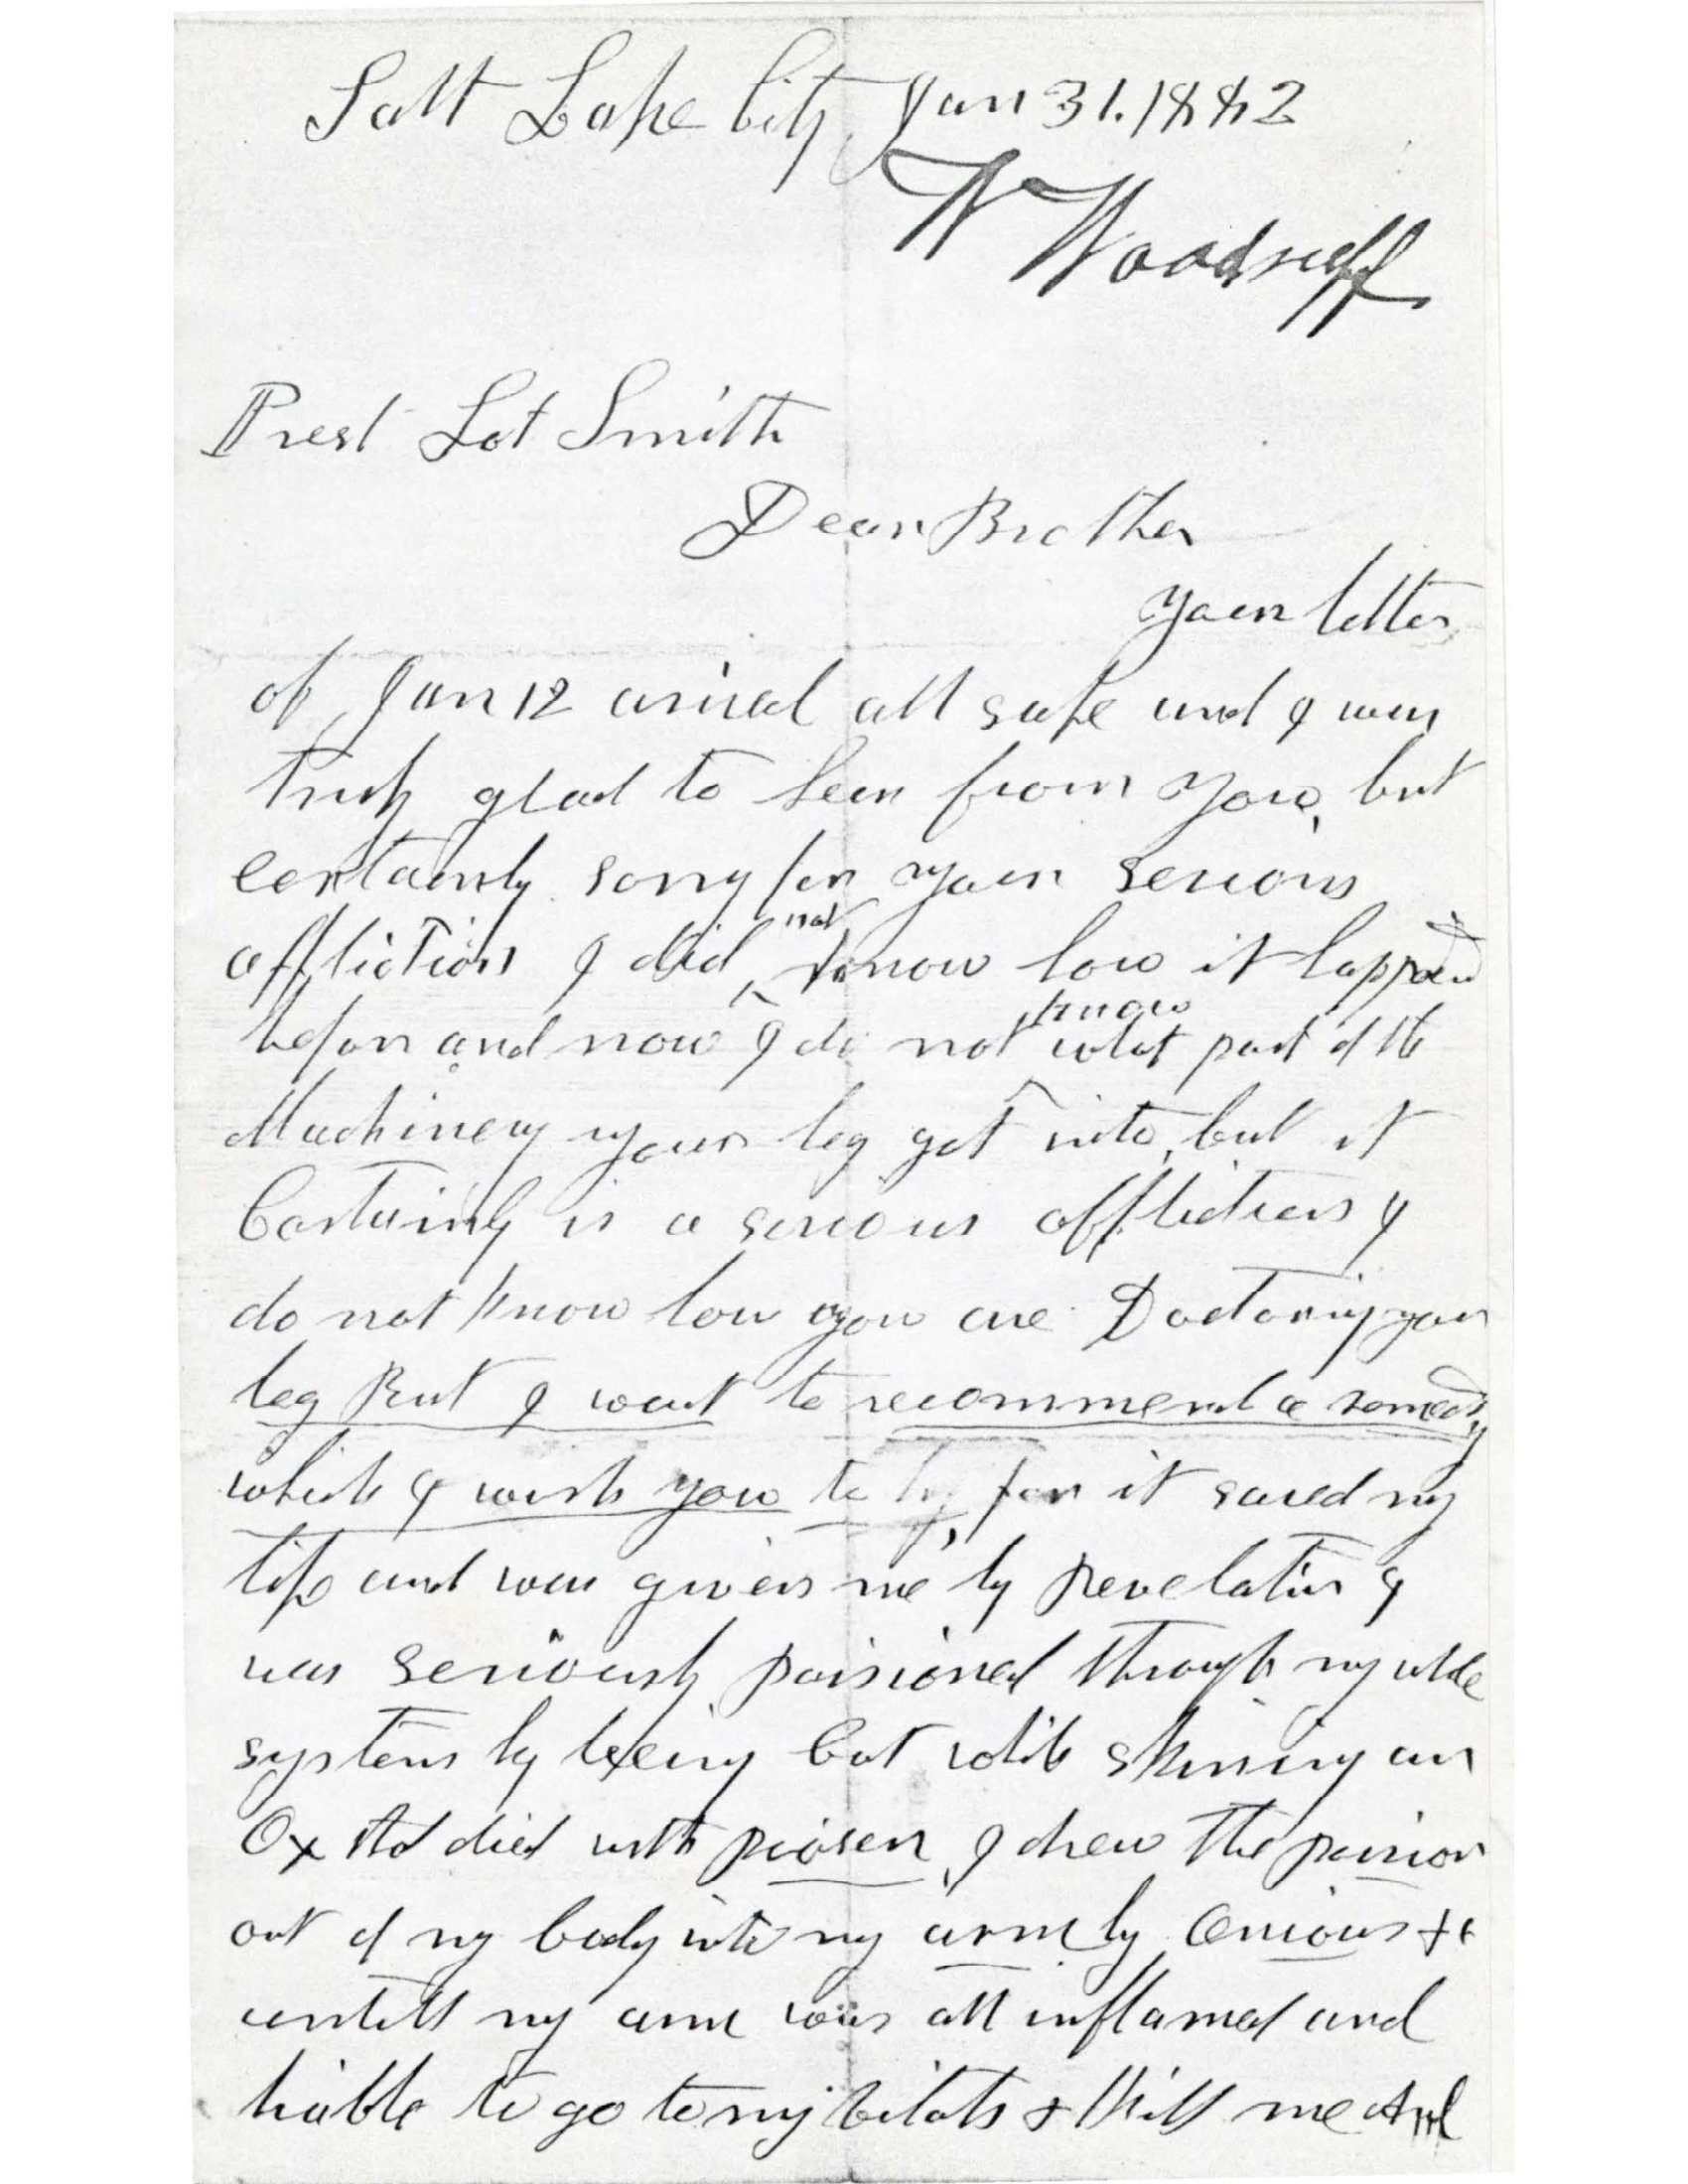 Salt Lake City Jan 31. 1882
W Woodruff
Prest Lot Smith
Dear Brother
Your letter
of Jan 12 arived all safe and I was
truly glad to hear from you, but
certainly sorry for your serious
affliction I did not know how it happened
before and now I do not know what part of the
Machinery your leg got into, but it
Certainly is a serious affliction I
do not know how you are Doctoring your
leg But I want to recommend a remedy
which I wish you to try, for it saved my
life and was given me by Revelation I
was seriously poisioned through my whole
system by being Cut while skinning an
Ox that died with poisen, I drew the poision
out of my body into my arm by Onions &c
untill my arm was all inflamed and
liable to go to my vitals & kill me And